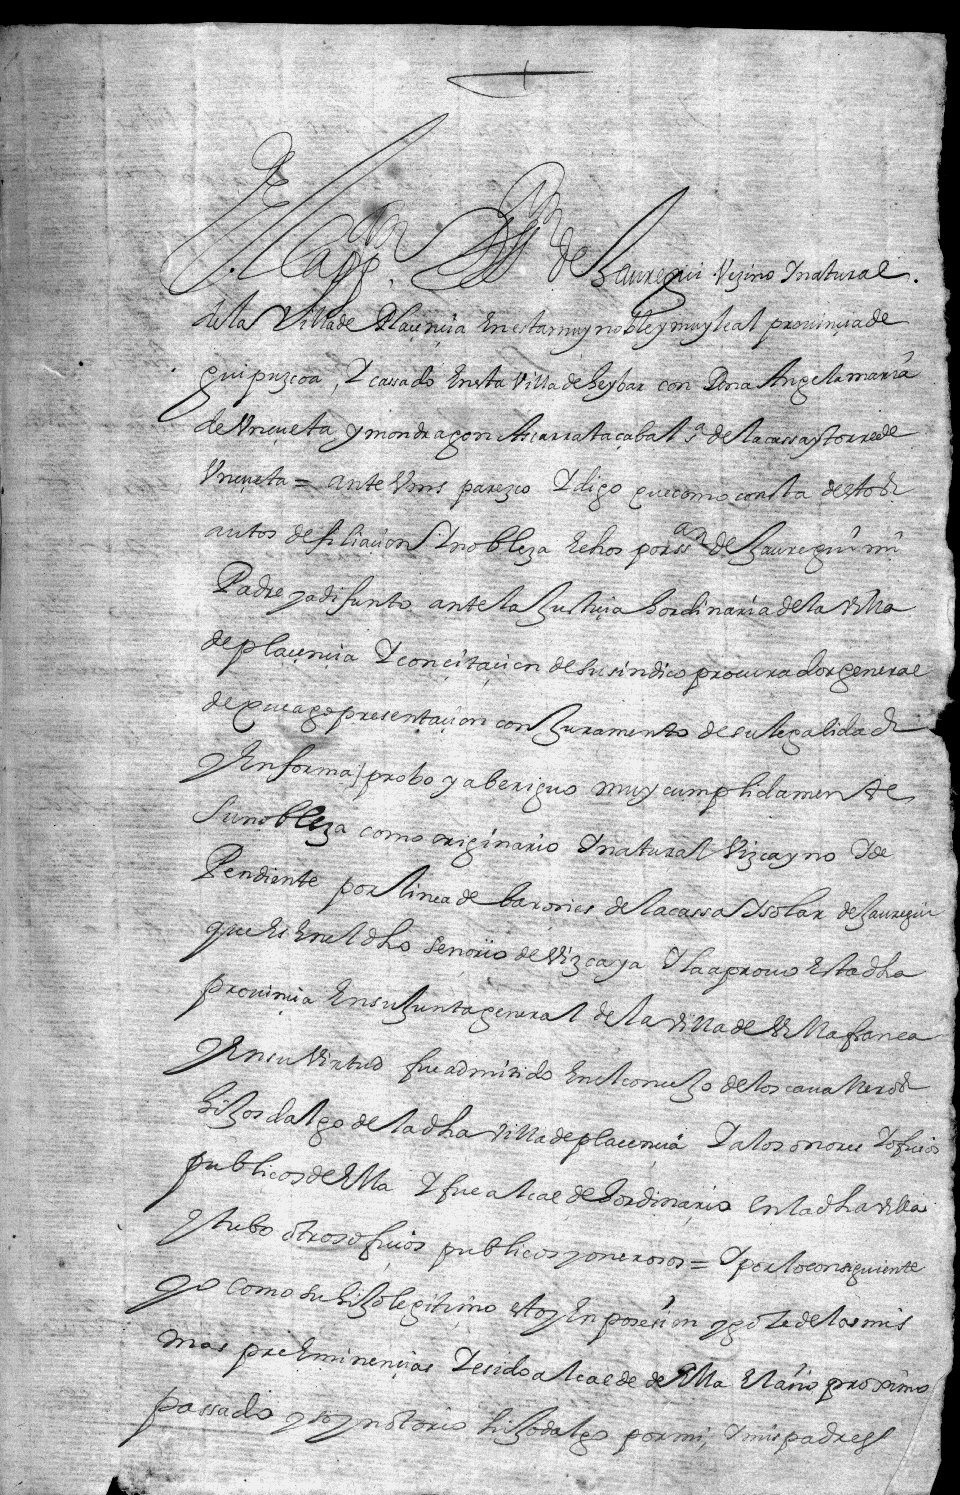 El Capp.an Ju.o de Jauregui Vezino Y natural
de la Villa de Plaçençia En esta muy noble y muy leal prouinçia de
guipuzcoa, Y cassado En esta Villa de heybar con Dona Angela maria
de Vnçueta y mondragon Ascarrataçabal s.a de la cassa y torre de
Vnçueta = ante Vms parezco Y digo que como consta destos
autos de filiaçion Y nobleza Echos por de Jauregui mi
Padre ya difunto ante la Justiçia hordinaria de la villa
de plaçençia Y con çitaçion de su sindico procurador general
de que ago presentaçion con Juramento de su legalidad
y En forma, probo y aberiguo muy cumplidamente
Su nobleza como originario Y natural Vizcayno Y de
Pendiente por linea de barones de la cassa Y solar de Jauregui
que Es En el dho Senorio de Vizcaya Y la aprouo Esta dha
prouinçia En su Junta general de la villa de Villafranca
y En su Virtud fue admitido En el conçejo de los caualleros
hijos dalgo de la dha villa de plaçençia Y a los onores Y ofiçios
publicos de Ella Y fue alcalde hordinario En la dha villa
y tubo otros ofiçios publicos y onerosos = Y por lo consiguiente
yo como su hijo legitimo estoy En posesion y goze de los mis
mas preEminençias Y e sido alcalde de Ella El año proximo
passado y soy notorio hijodalgo por mi, Y mis padres